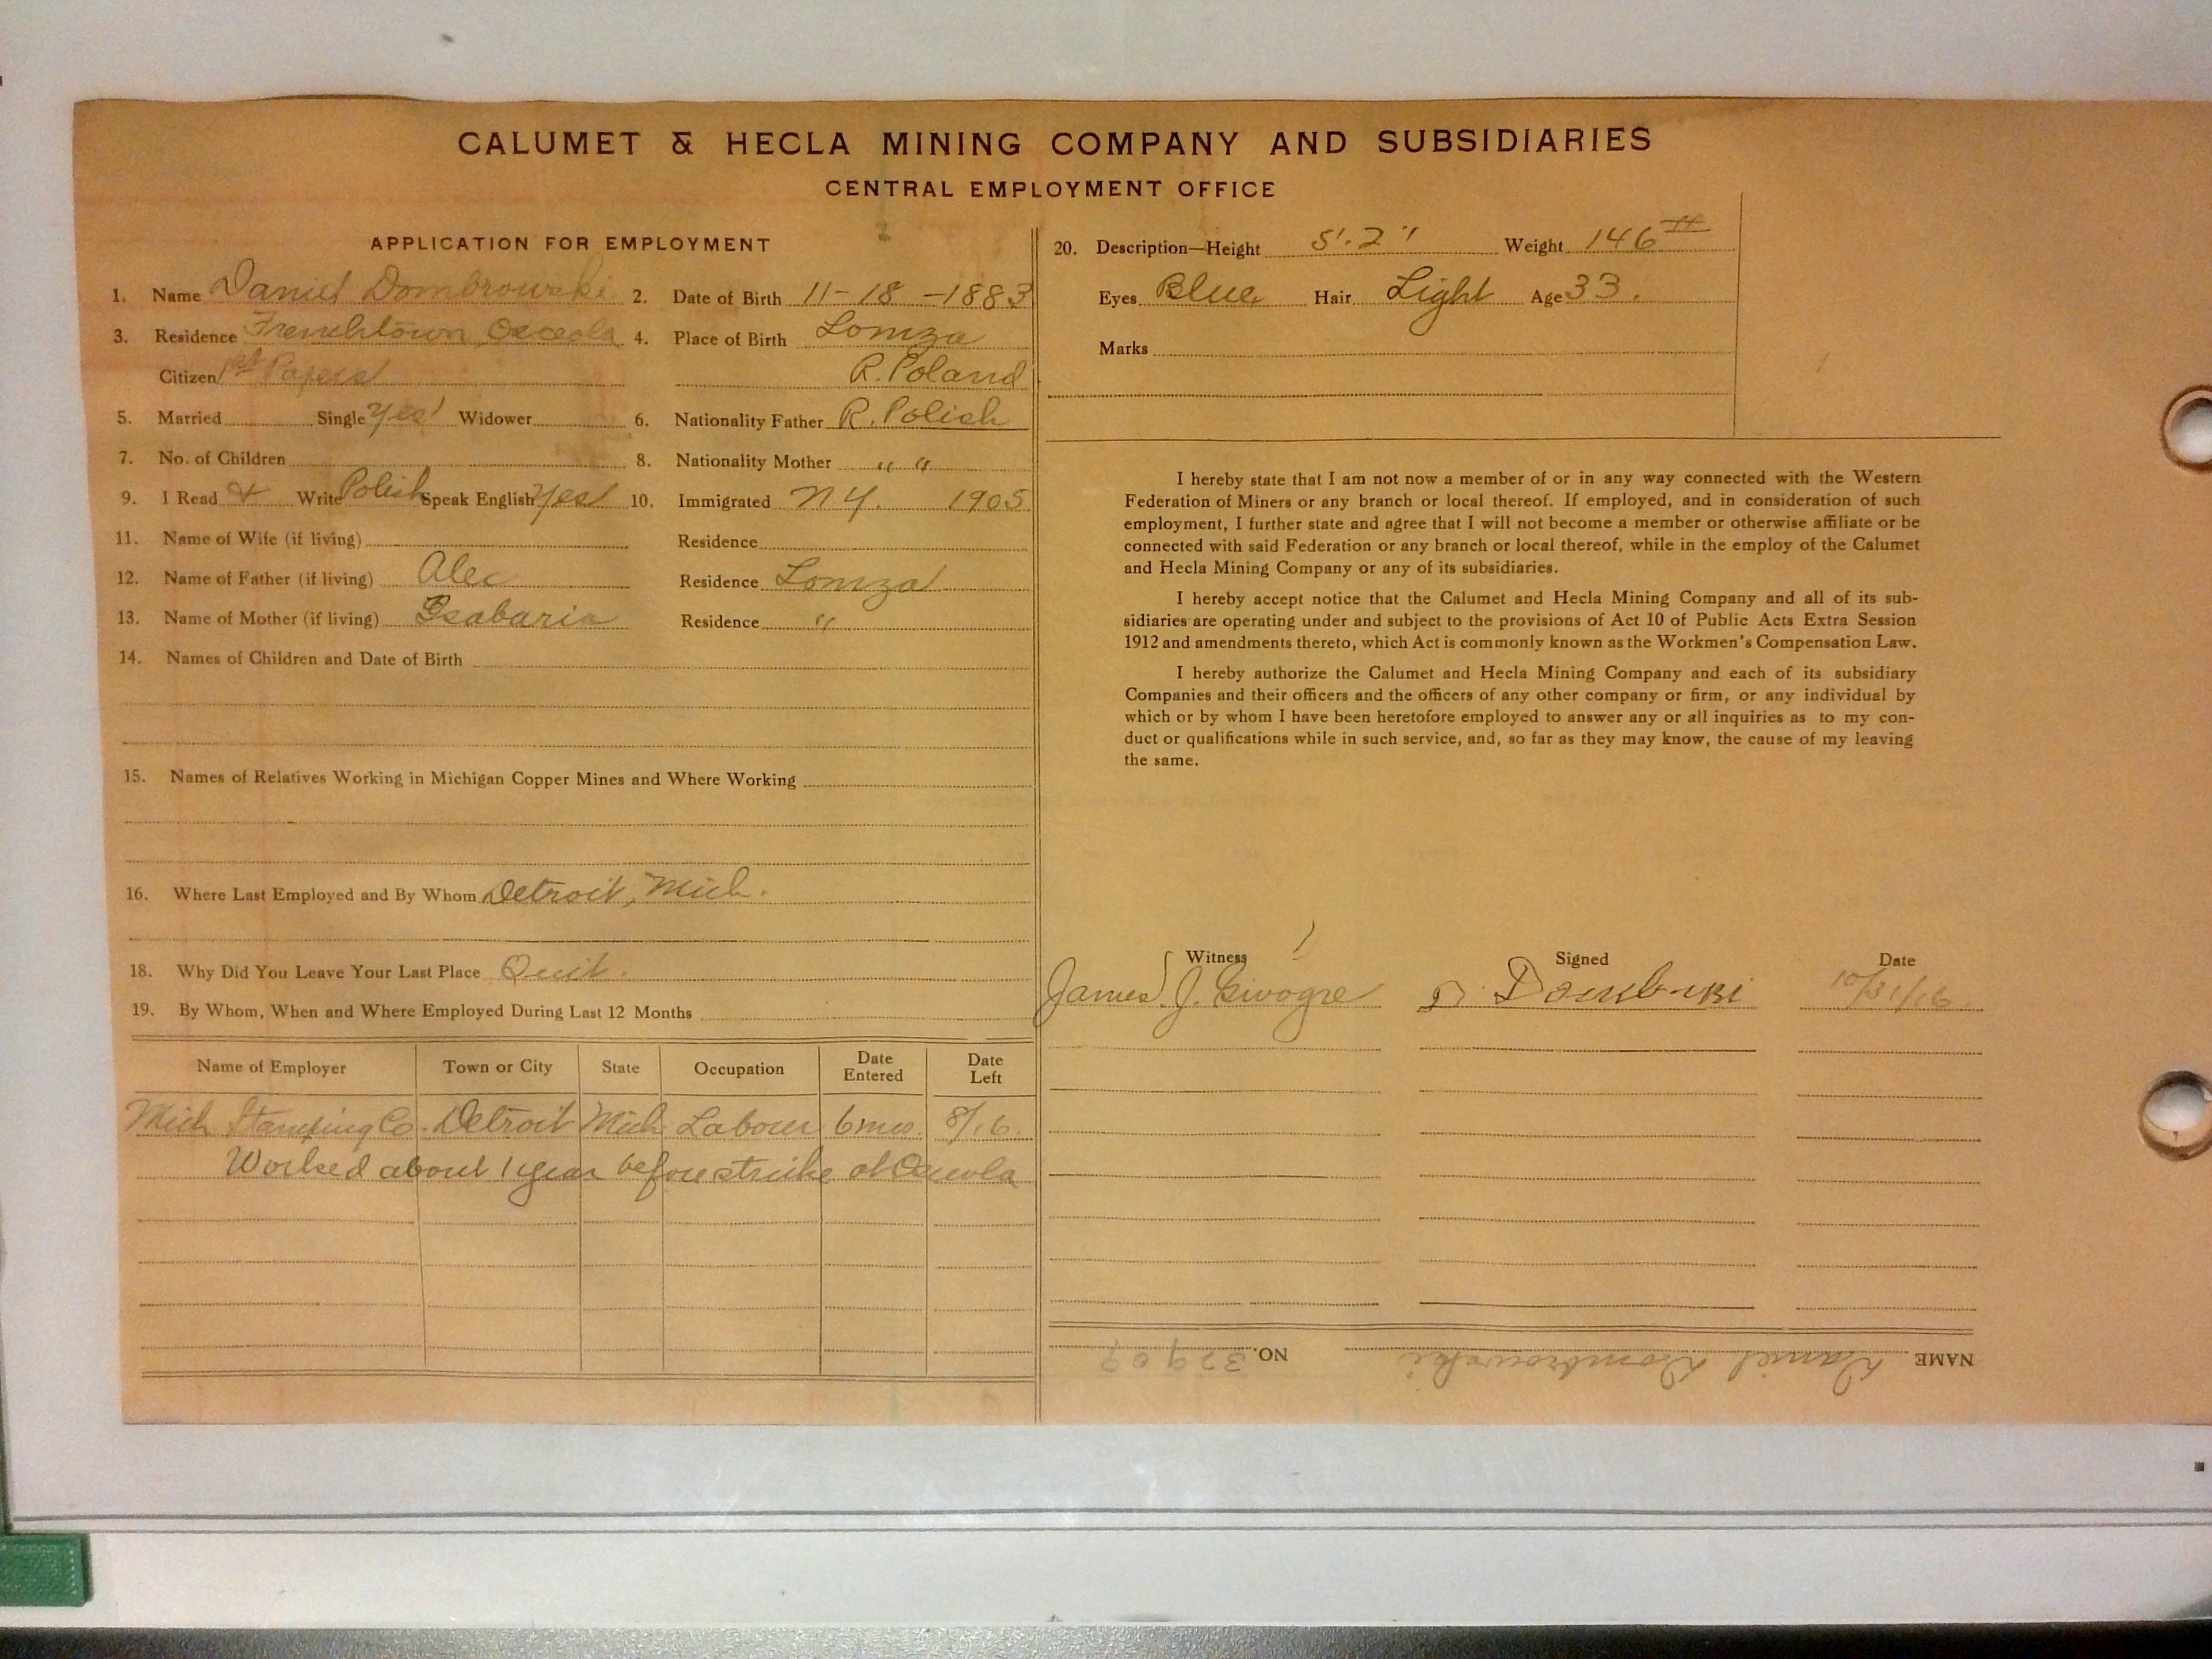 CALUMET & HECLA MINING COMPANY AND SUBSIDIARIES
CENTRAL EMPLOYMENT OFFICE
APPLICATION FOR EMPLOYMENT
1. Name Daniel Dombrowski 2. Date of Birth 11-18-1883
3. Residence Frenchtown, Osceola 4. Place of Birth Lomza
Citizen 1st Papers R. Poland
5. Married Single Yes Widower 6. Nationality Father R. Polish
7. No. of Children 8. Nationality Mother " "
9. I Read & Write Polish Speak English Yes 10. Immigrated N.Y. 1905
11. Name of Wife (if living) Residence
12. Name of Father (if living) Alec Residence Lomza
13. Name of Mother (if living) Residence "
14. Names of Children and Date of Birth
15. Names of Relatives Working in Michigan Copper Mines and Where Working
16. Where Last Employed and By Whom Detroit, Mich.
18. Why Did You Leave Your Last Place Quit.
19. By Whom, When and Where Employed During Last 12 Months
Name of Employer Town or City State Occupation Date Entered Date Left
Mich. Stamping Co. Detroit Mich Labour 6 mos. 8/16.
Worked about 1 year before strike at Osceola
20. Description—Height 5'.2" Weight 146 #
Eyes Blue Hair Light Age 33.
Marks
I hereby state that I am not now a member of or in any way connected with the Western
Federation of Miners or any branch or local thereof. If employed, and in consideration of such
employment, I further state and agree that I will not become a member or otherwise affiliate or be
connected with said Federation or any branch or local thereof, while in the employ of the Calumet
and Hecla Mining Company or any of its subsidiaries.
I hereby accept notice that the Calumet and Hecla Mining Company and all of its sub-
sidiaries are operating under and subject to the provisions of Act 10 of Public Acts Extra Session
1912 and amendments thereto, which Act is commonly known as the Workmen's Compensation Law.
I hereby authorize the Calumet and Hecla Mining Company and each of its subsidiary
Companies and their officers and the officers of any other company or firm, or any individual by
which or by whom I have been heretofore employed to answer any or all inquiries as to my con-
duct or qualifications while in such service, and, so far as they may know, the cause of my leaving
the same.
Witness Signed Date
James J. 10/31/16.
NAME Daniel Dombrowski NO. 32907